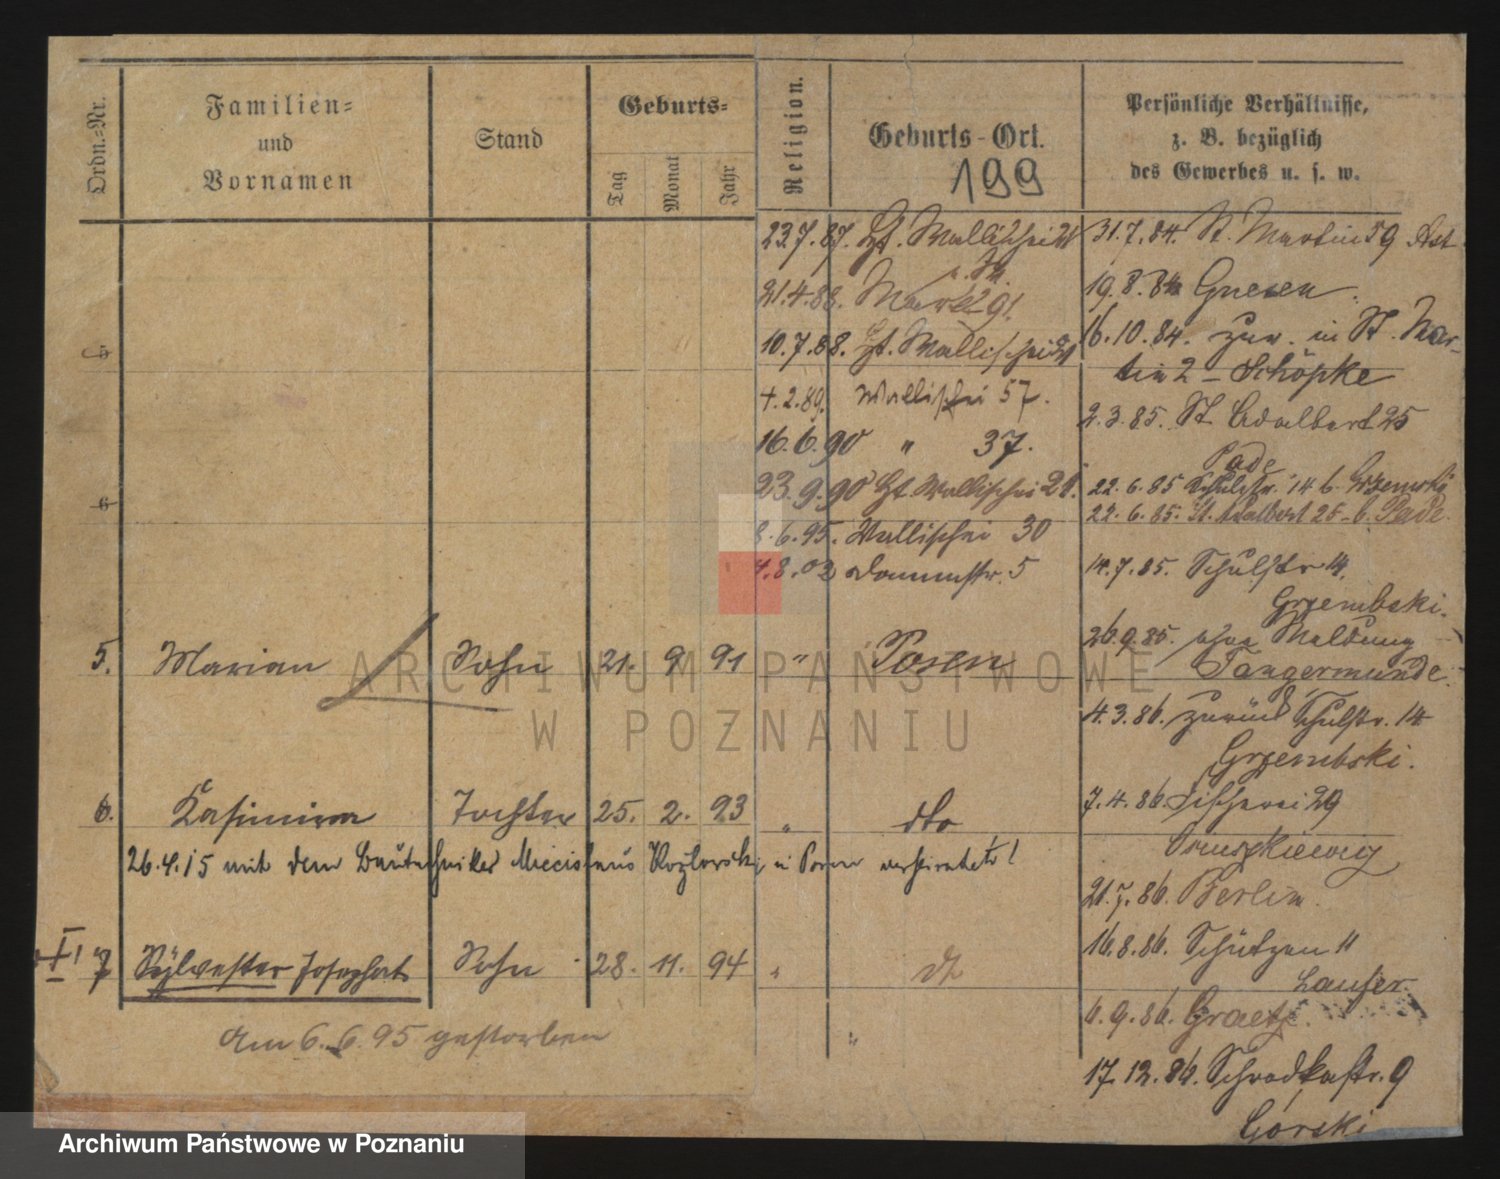 Ordn.-Nr.
Familien-
und
Vornamen
Stand
Geburts-
Tag
Monat
Jahr
Religion.
Geburts-Ort.
199
Persönliche Verhältnisse,
z. B. bezüglich
des Gewerbes u. s. w.
23.7.87. Hf. Wallischei
21.4.88. Markt 91.
10.7.88. Hf. Wallischei
4.2.89. Wallischei 57.
16.6.90 " 37.
23.9.90 Hf Wallischei 21.
8.6.95. Wallischei 30
4.8.02 Dommstr. 5
31.7.84. St. Martin 59
19.8.84 Gnesen.
16.10.84. zur. in St. Mar-
tin 2 – Schöpke
2.3.85. St. Adalbert 25
Pade
22.6.85 Schulstr. 14 b. Grzembski
22.6.85. St. Adalbert 25 b. Pade.
14.7.85. Schulstr 14,
Grzembski.
26.9.85. ohne Meldung
Tangermünde.
4.3.86. zurück Schulstr. 14
Grzembski.
7.4.86. Fischerei 29
21.7.86. Berlin.
16.8.86. Schützen 11
Laufer.
6.9.86. Graetz.
17.12.86. Schrodkastr. 9
Górski
5
6
5. Marian Sohn 21. 9 91 " Posen
6. Kasimira Tochter 25. 2. 93 " dto
26.4.15 mit dem Bautechniker Miecislaus Kozlowski in Posen verheiratet!
I 7 Sylvester Josephat Sohn 28. 11. 94 " dt
am 6.6.95 gestorben
"
ARCHIWUM PAŃSTWOWE
W POZNANIU
Archiwum Państwowe w Poznaniu